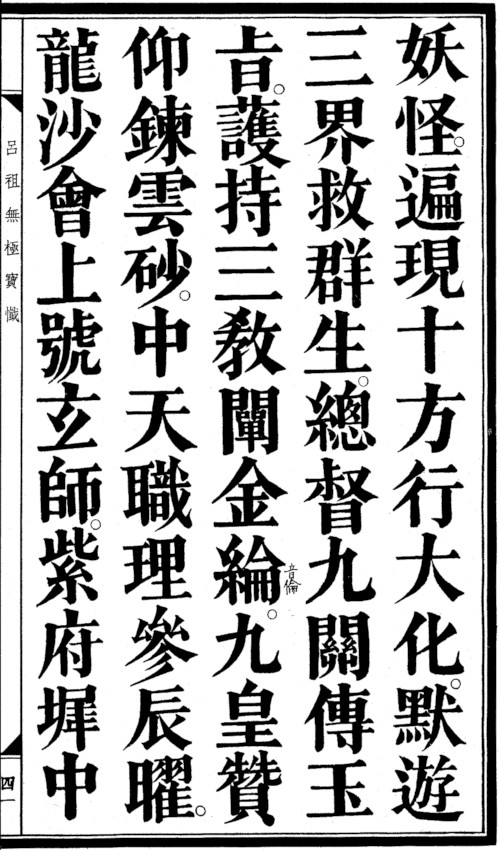 妖怪。遍現十方行大化。默遊
三界救群生。總督九關傳玉
旨。護持三教闡金綸音倫。九皇贊
仰鍊雲砂。中天職理參辰曜。
龍沙會上號玄師。紫府墀中
呂祖無極寶懺
四一